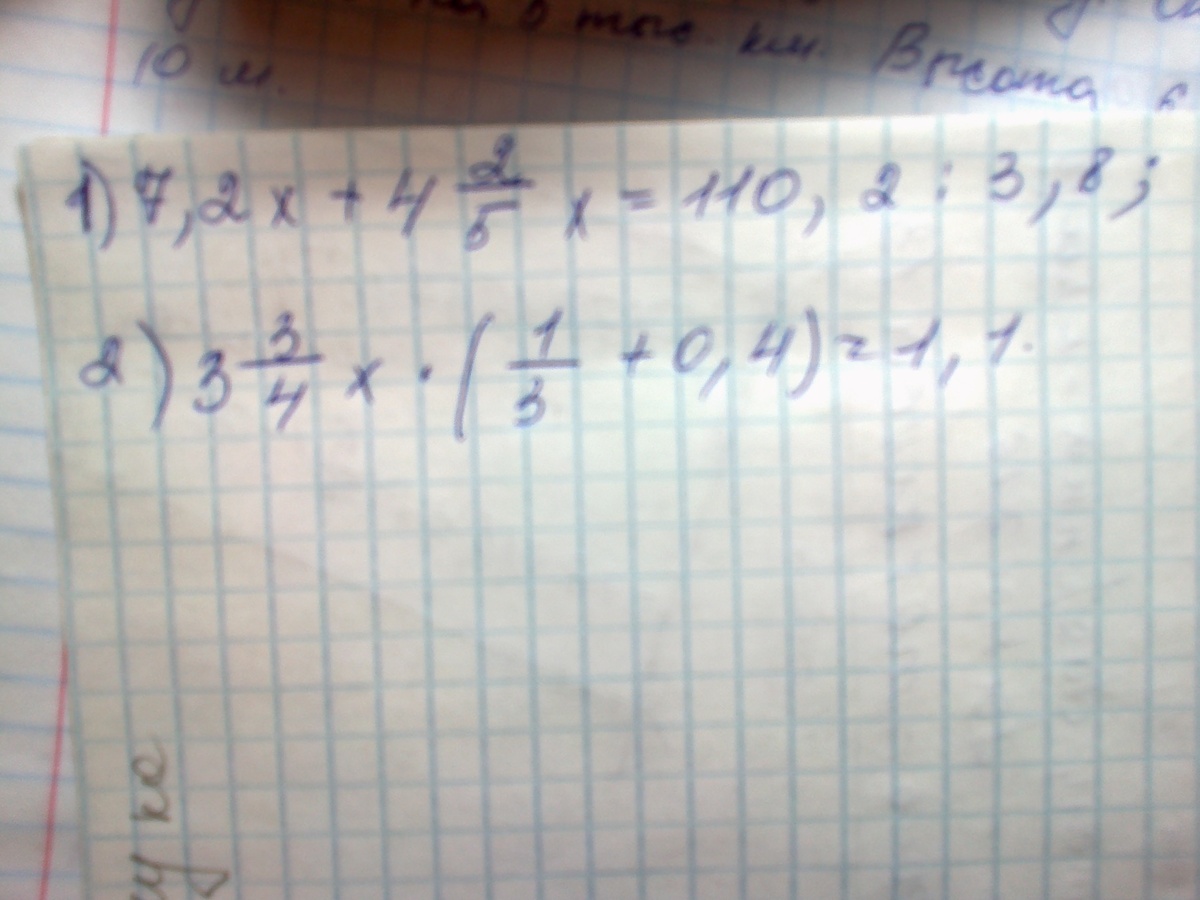 тыс. км. Высота
10 м.
1) 7,2x + 4 2/5 x = 110,2 : 3,8;
2) 3 3/4 x · (1/3 + 0,4) = 1,1.